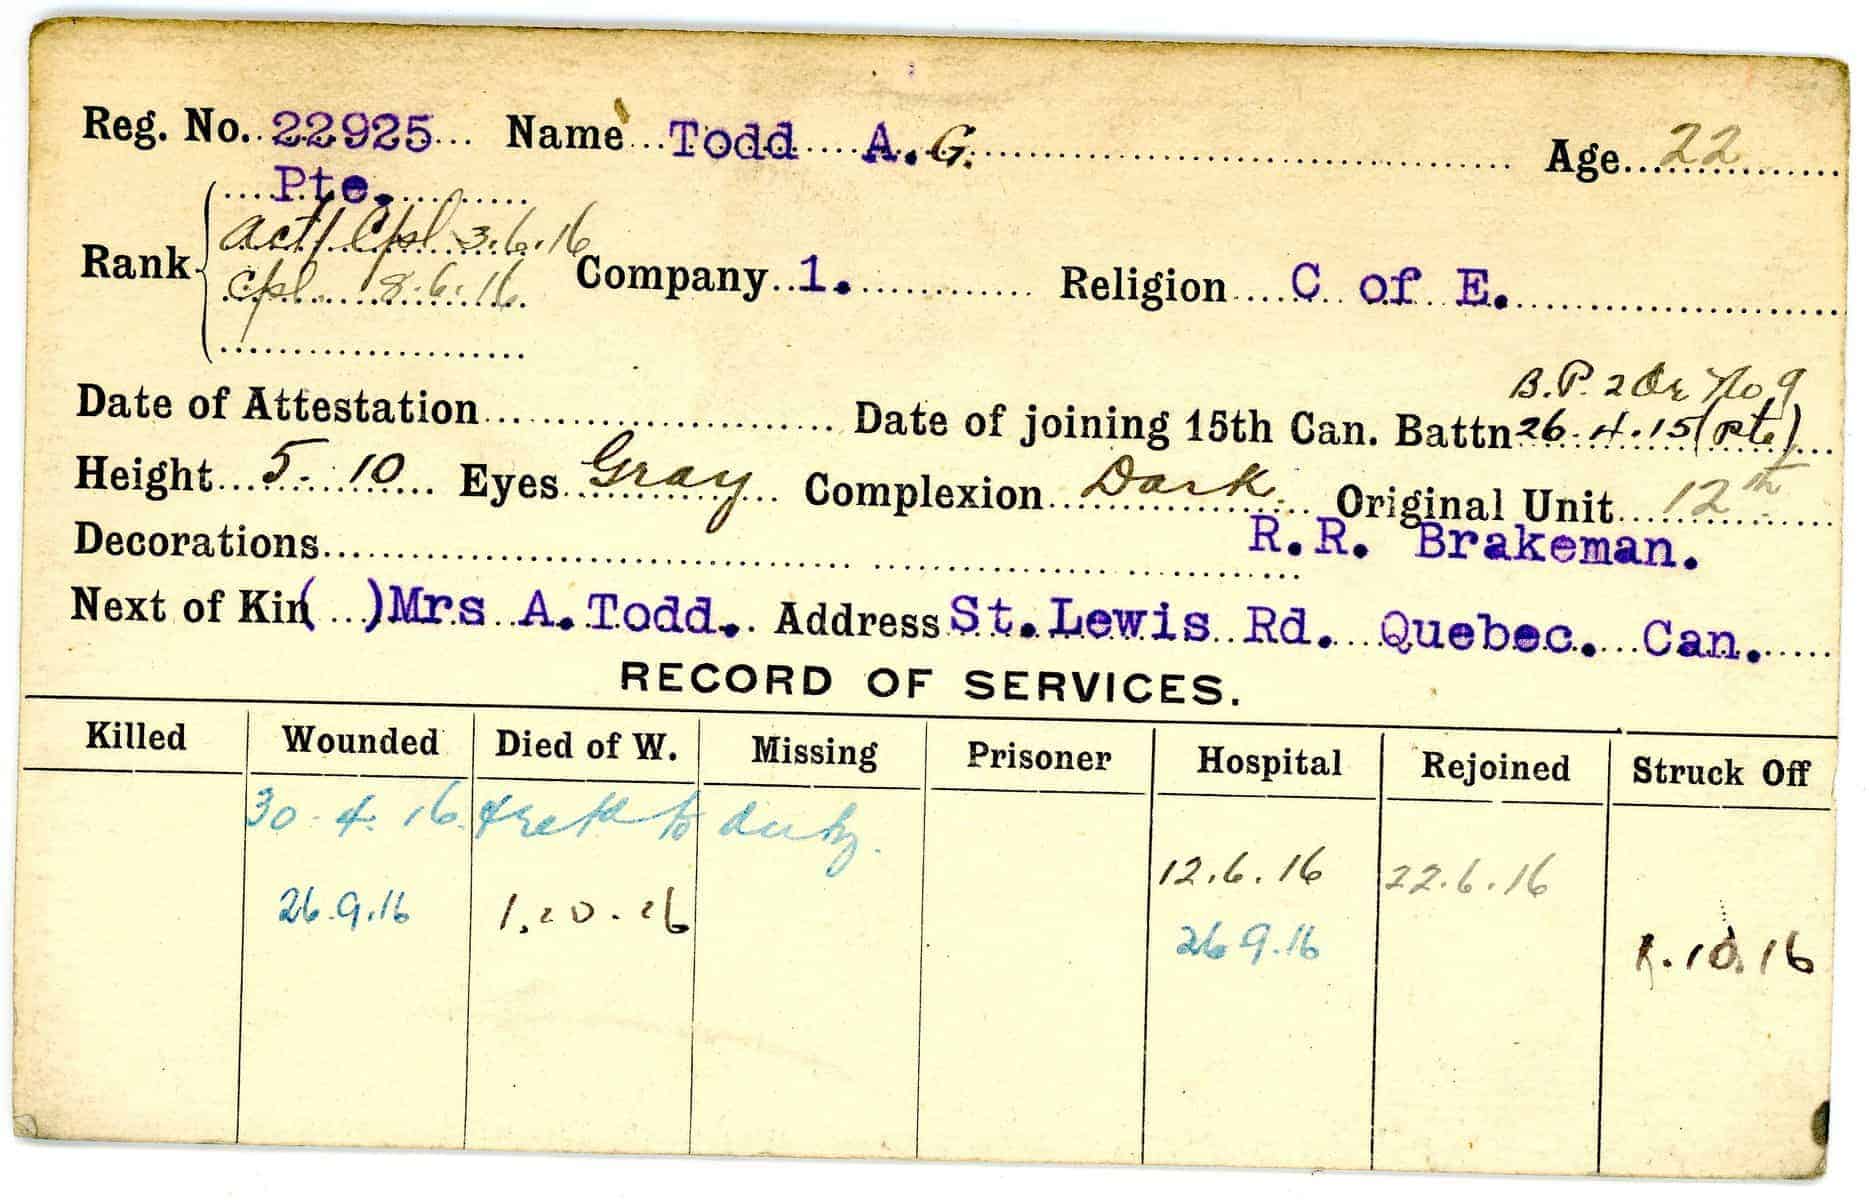 Reg. No. 22925 Name Todd A. G. Age 22
Pte.
Rank act/Cpl 3.6.16
Cpl 8.6.16 Company 1. Religion C of E.
B.P. 2 Or No 9
Date of Attestation Date of joining 15th Can. Battn 26.4.15 (Pte)
Height 5-10 Eyes Gray Complexion Dark. Original Unit 12th
Decorations R.R. Brakeman.
Next of Kin ( ) Mrs A. Todd. Address St. Lewis Rd. Quebec. Can.
RECORD OF SERVICES.
Killed Wounded Died of W. Missing Prisoner Hospital Rejoined Struck Off
30.4.16. to duty.
12.6.16 22.6.16
26.9.16 26 9.16 1.10.16